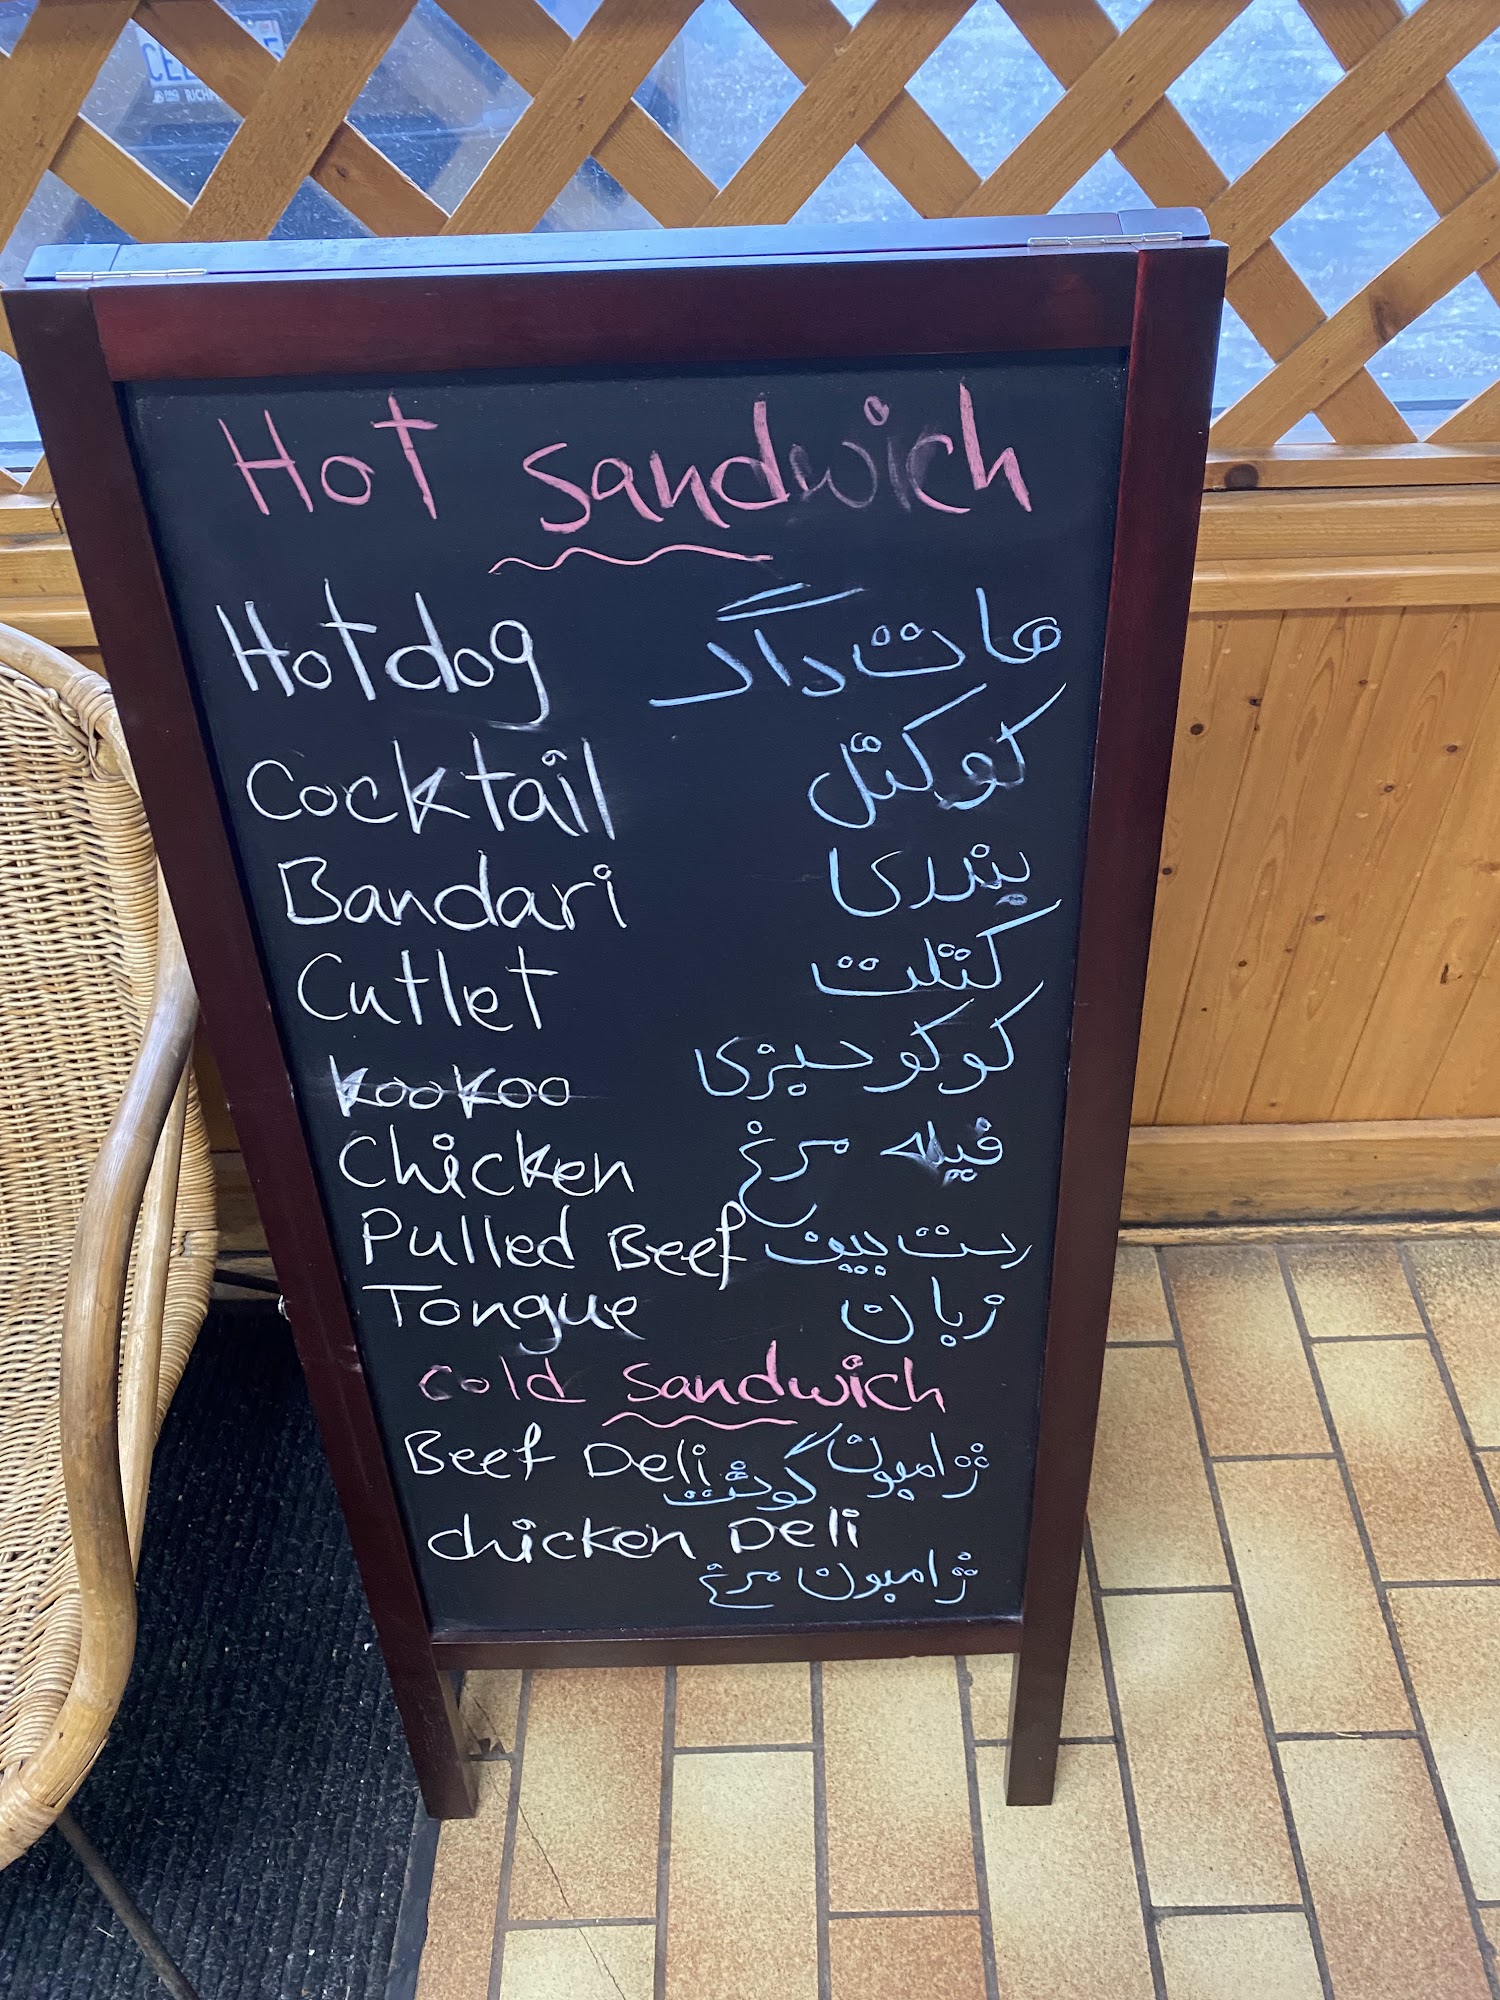 Hot Sandwich
Hotdog هات داگ
Cocktail کوکتل
Bandari بندری
Cutlet کتلت
Kookoo کوکو سبزی
Chicken فیله مرغ
Pulled Beef رست بیف
Tongue زبان
Cold Sandwich
Beef Deli ژامبون گوشت
Chicken Deli
ژامبون مرغ